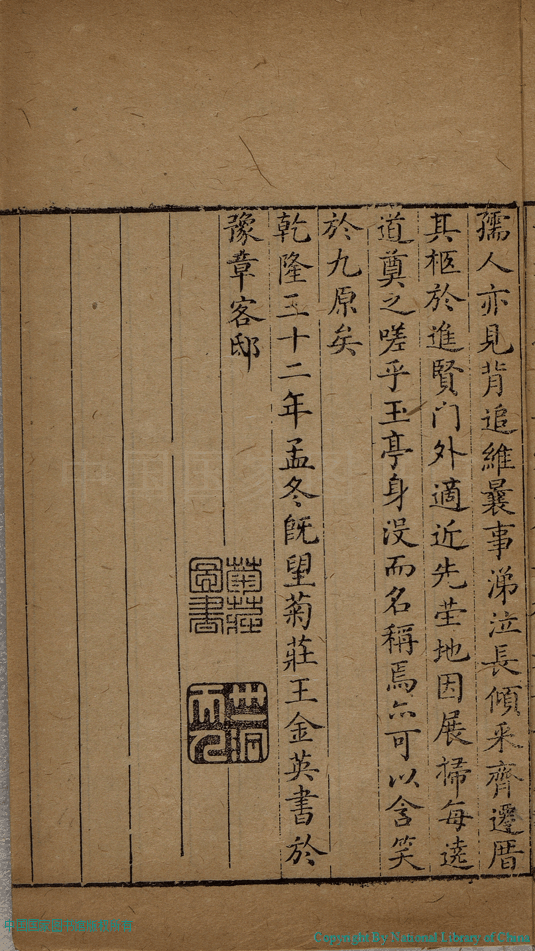 孺人亦見背追維曩事涕泣長傾采齊遷厝
其柩於進賢門外適近先塋地因展掃每遶
道奠之嗟乎玉亭身沒而名稱焉亦可以含笑
於九原矣
乾隆三十二年孟冬旣望菊莊王金英書於
豫章客邸
菊莊
圖書
Copyright By National Library of China